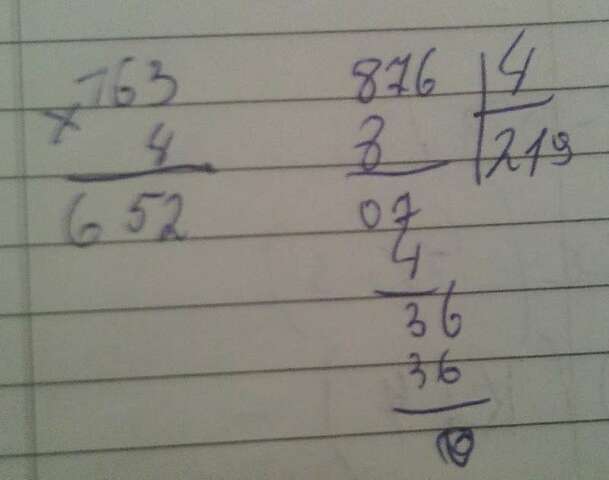 163
× 4
652
876 4
8 219
07
4
36
36
0